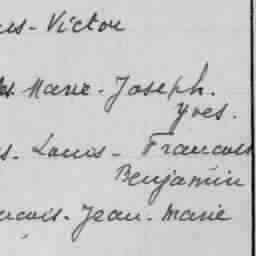 Victor
Marie - Joseph.
Yves.
s - Louis - Francois
Benjamin
ncois - Jean - Marie